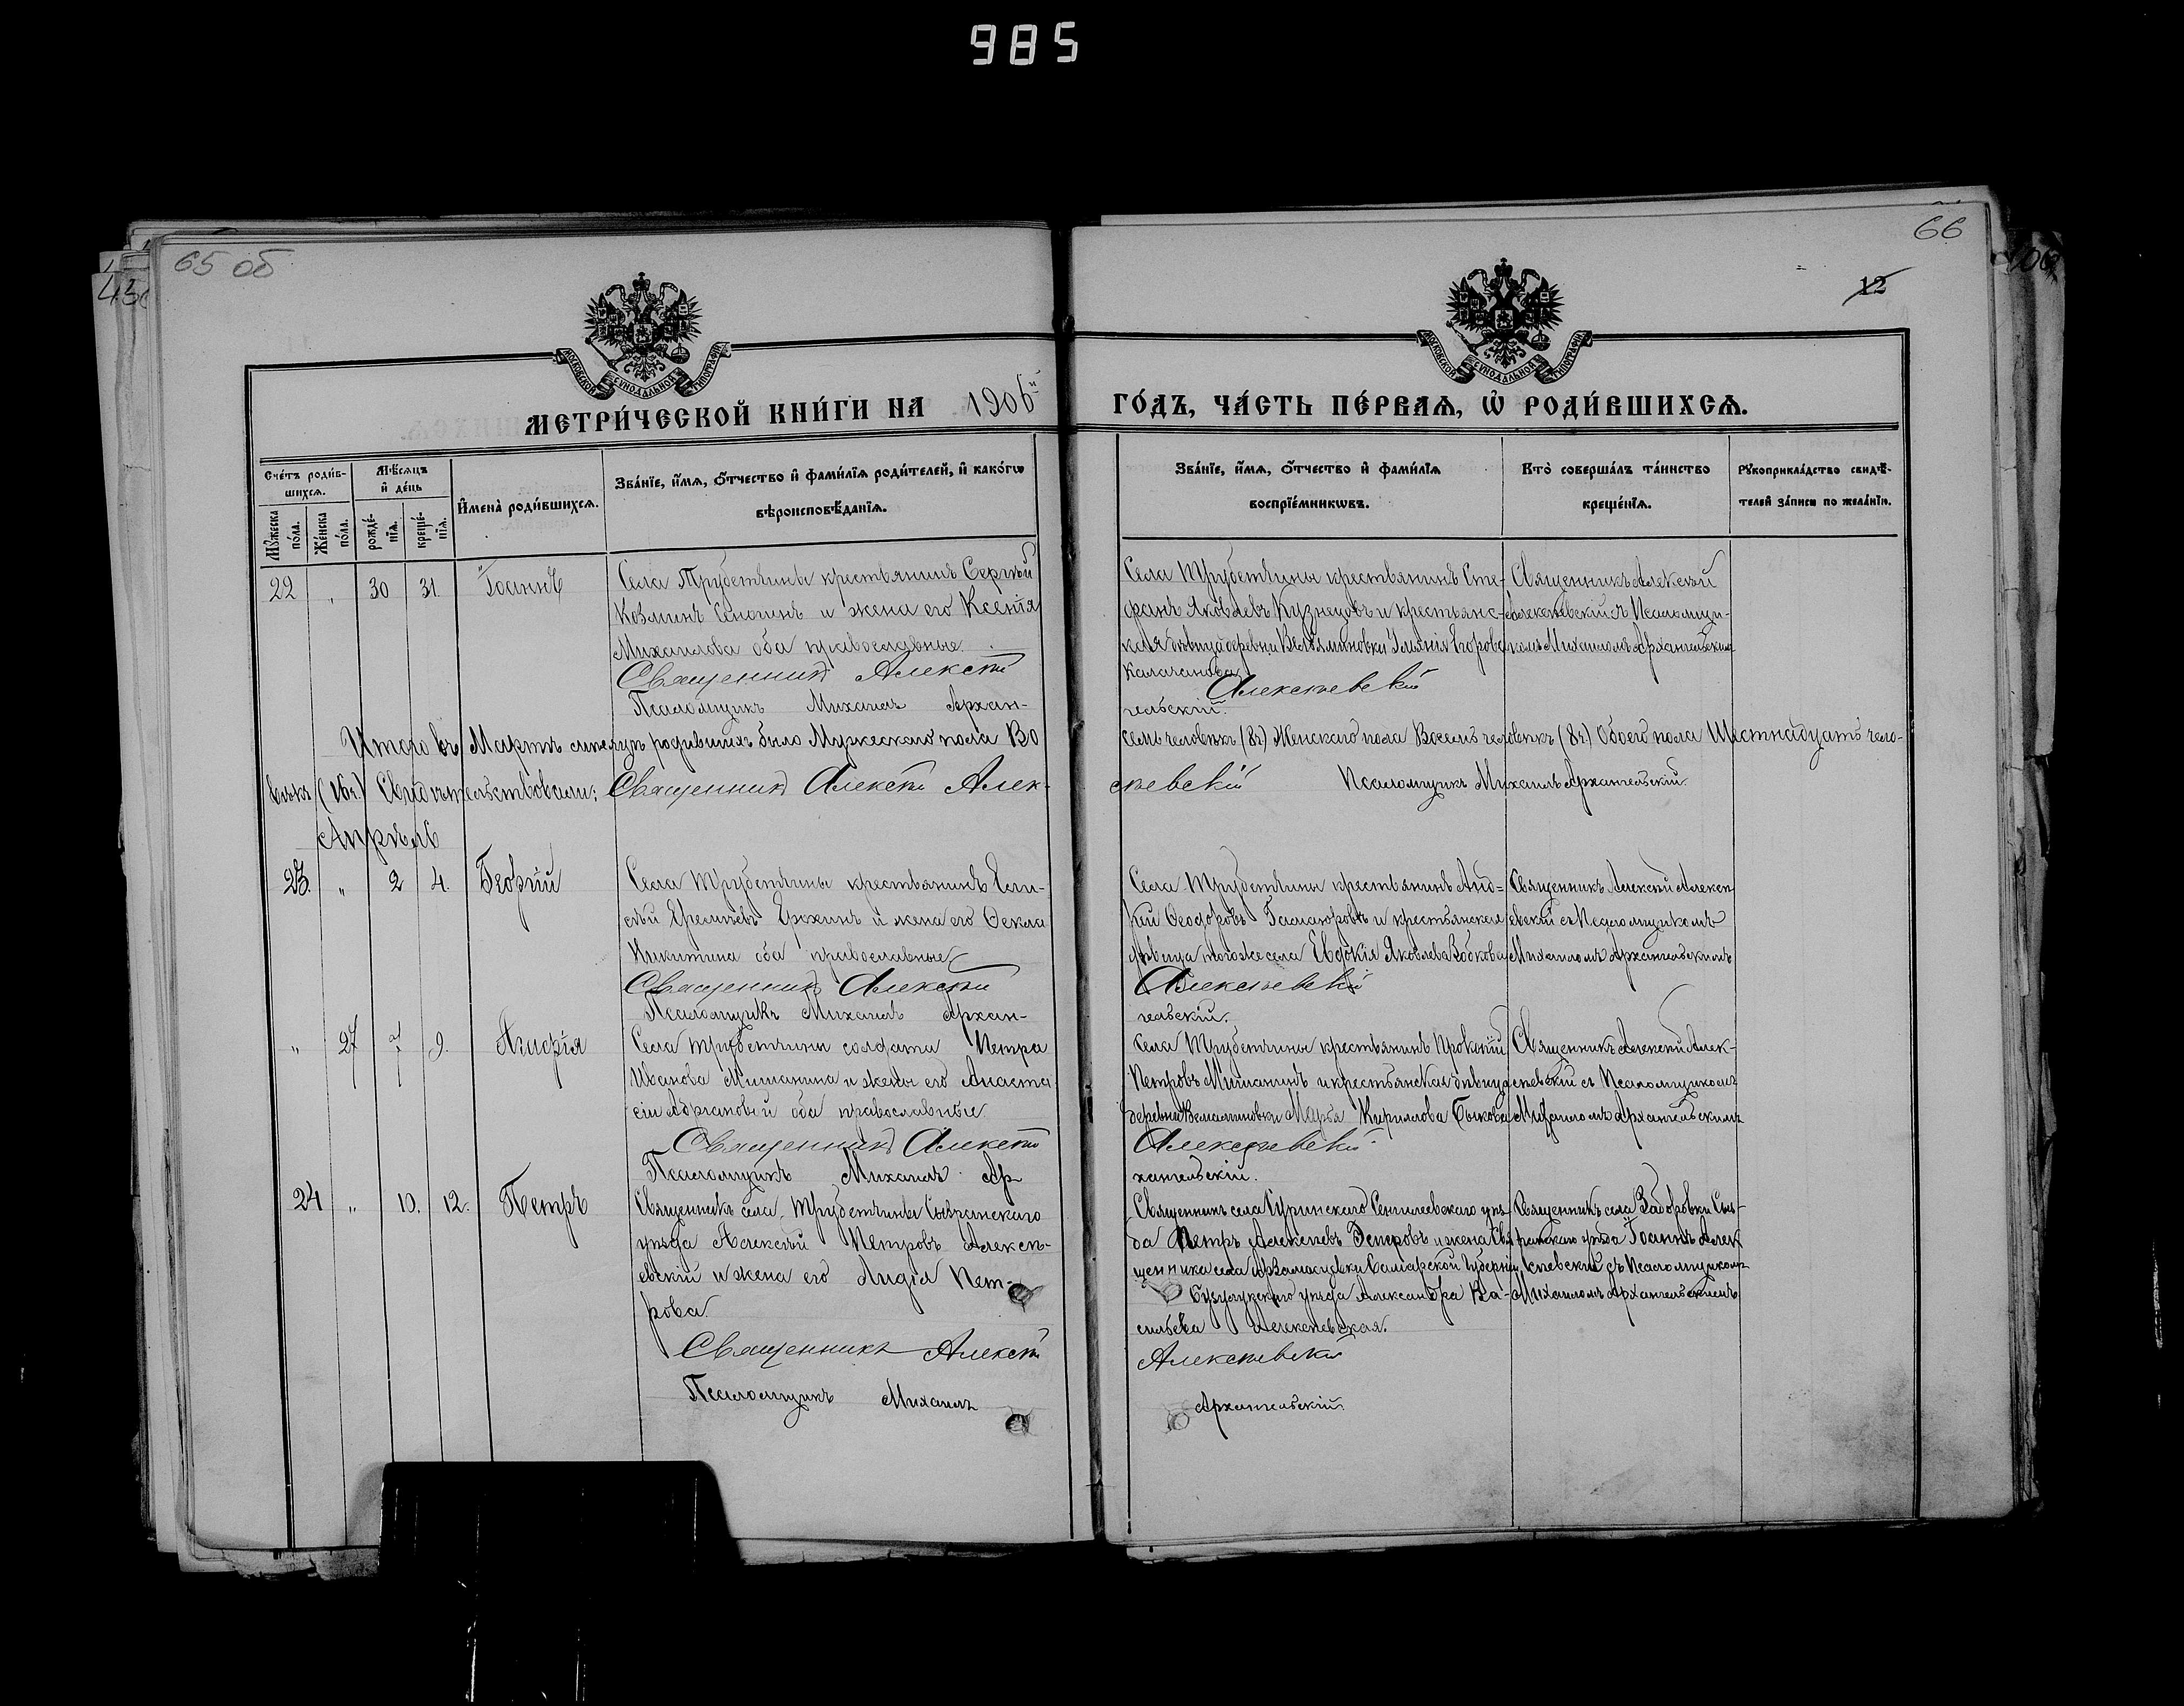 985
65 об
66
12
МОСКОВСКОЙ СѴНОДАЛЬНОЙ ТИПОГРАФІИ
МОСКОВСКОЙ СѴНОДАЛЬНОЙ ТИПОГРАФІИ
МЕТРИ́ЧЕСКОЙ КНИ́ГИ НА 1906й ГО́ДЪ, ЧА́СТЬ ПЕ́РВАѦ, Ѡ҆ РОДИ́ВШИХСѦ.
Сче́тъ роди́в-
шихсѧ.
Мꙋ́жеска по́ла.
Же́нска по́ла.
Мѣ́сѧцъ и҆ де́нь
рожде́-нїѧ.
креще́-нїѧ.
И҆мена̀ роди́вшихсѧ.
Зва́нїе, и҆́мѧ, ѻ҆́тчество и҆ фами́лїѧ роди́телей, и҆ како́гѡ
вѣроисповѣ́данїѧ.
Зва́нїе, и҆́мѧ, ѻ҆́тчество и҆ фами́лїѧ
воспрїе́мникѡвъ.
Кто̀ соверша́лъ та́инство
креще́нїѧ.
Рꙋкоприкла́дство свидѣ́-
телей за́писи по жела́нїю.
22 " 30 31. Іоаннъ
Села Трубетчины крестьянинъ Сергѣй
Козминъ и жена его Ксенія
Михайлова оба православные
Священникъ Алексѣй
Псаломщикъ Михаилъ Архан-
Села Трубетчины крестьянинъ Сте-
фанъ Яковлевъ Кузнецовъ и крестьянс-
кая дѣвица деревни Вельяминовки Егорова
Алексѣевскій
гельскій.
Священникъ Алексѣй
Алексѣевскій съ Псаломщи-
комъ Михаиломъ Архангельскимъ
Итого въ Мартѣ мѣсяцѣ родившихъ было Мужескаго пола Во
семь человѣкъ (8ч.) Женскаго пола Восемь человѣкъ (8ч.) Обоего пола Шестнадцать чело-
вѣкъ (16ч.) Свидѣтельствовали: Священникъ Алексѣй Алек-
сѣевскій Псаломщикъ Михаилъ Архангельскій.
Апрѣль
23. " 2 4. Георгій
Села Трубетчины крестьянинъ Ели-
сѣй и жена его Ѳекла
Никитина оба православные
Священникъ Алексѣй
Псаломщикъ Михаилъ Архан-
Села Трубетчины крестьянинъ Анд-
рей Ѳеодоровъ и крестьянская
дѣвица того же села Евдокія Яковлева
Алексѣевскій
гельскій.
Священникъ Алексѣй Алексѣ-
евскій съ Псаломщикомъ
Михаиломъ Архангельскимъ
" 27 7 9. Агафія
Села Трубетчины солдата Петра
Иванова Мишанина и жены его Анаста
сіи оба православные
Священникъ Алексѣй
Псаломщикъ Михаилъ Ар-
Села Трубетчины крестьянинъ Прокопій
Петровъ Мишанинъ и крестьянская дѣвица
деревни Вельяминовки Марья Кириллова Быкова
Алексѣевскій
хангельскій.
Священникъ Алексѣй Алек-
сѣевскій съ Псаломщикомъ
Михаиломъ Архангельскимъ
24 " 10. 12. Петръ
Священникъ села Трубетчины Сызранскаго
уѣзда Алексѣй Петровъ Алексѣ-
евскій и жена его Лидія Пет-
рова.
Священникъ Алексѣй
Псаломщикъ Михаилъ
Священникъ села Сенгилеевскаго уѣз-
да Петръ Алексѣевъ и жена Свя
щенника села Самарской губерніи
Бузулукскаго уѣзда Александра Ва-
сильева Алексѣевская.
Алексѣевскій
Архангельскій.
Священникъ села Заборовки Сыз-
ранскаго уѣзда Іоаннъ Алек
сѣевскій съ Псаломщикомъ
Михаиломъ Архангельскимъ